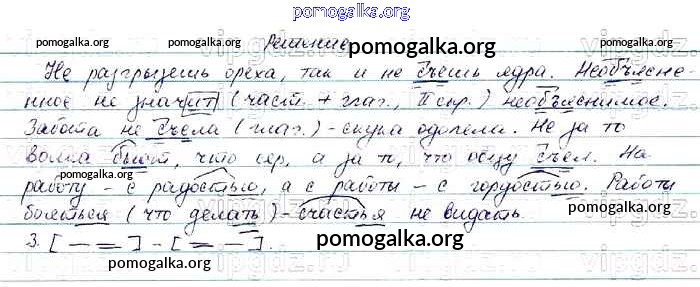 pomogalka.org
pomogalka.org Решение pomogalka.org
Не разгрызешь ореха, так и не съешь ядра. Необъясне-
нное не значит (част. + глаг., II спр.) необъяснимое.
Забота не съела (глаг.) - скука одолела. Не за то
волка бьют, что сер, а за то, что овцу съел. На
работу - с радостью, а с работы - с гордостью. Работы
pomogalka.org pomogalka.org
бояться (что делать) - счастья не видать.
3. [— =] - [= —]. pomogalka.org
pomogalka.org